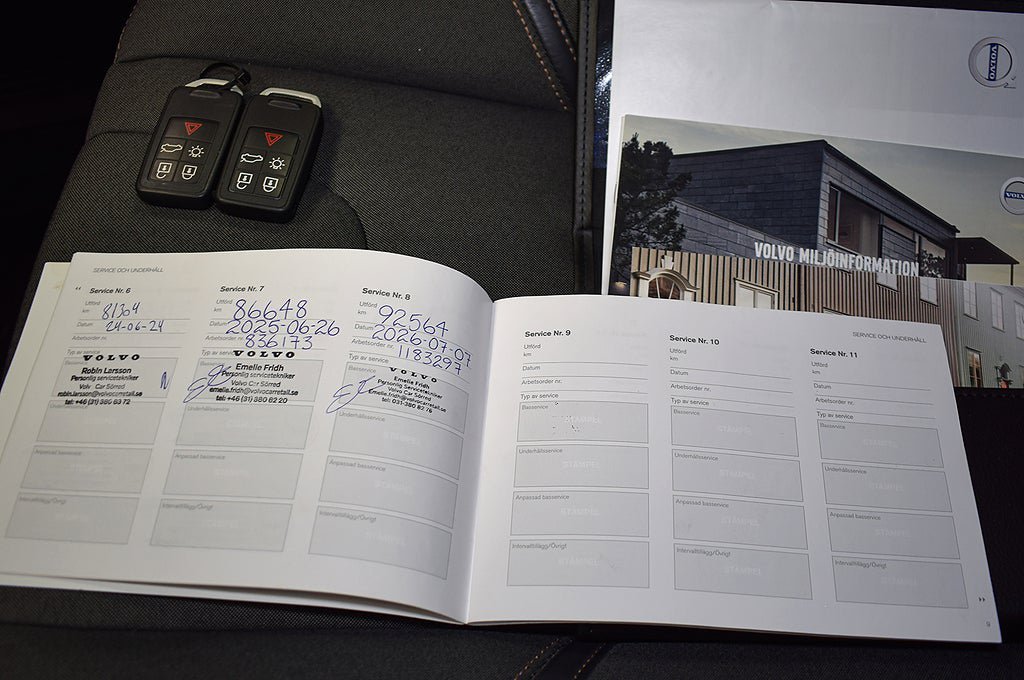 VOLVO
VOLVO
VOLVO MILJÖINFORMATION
SERVICE OCH UNDERHÅLL
Service Nr. 6
Utförd
km 81304
Datum 24-06-24
Arbetsorder nr.
Typ av service
Basservice
VOLVO
Robin Larsson
Personlig servicetekniker
Volvo Car Sörred
robin.larsson@volvocarretail.se
tel: +46 (31) 380 63 72
Underhållsservice
Anpassad basservice
STÄMPEL
Intervalltillägg/Övrigt
Service Nr. 7
Utförd
km 86648
Datum 2025-06-26
Arbetsorder nr. 836173
Typ av service
VOLVO
Emelie Fridh
Personlig servicetekniker
Volvo Car Sörred
emelie.fridh@volvocarretail.se
tel: +46 (31) 380 62 20
Underhållsservice
Anpassad basservice
Intervalltillägg/Övrigt
Service Nr. 8
Utförd
km 92564
Datum 2026-07-07
Arbetsorder nr. 1183297
Typ av service
VOLVO
Emelie Fridh
Personlig Servicetekniker
Volvo Car Sörred
Emelie.fridh@volvocarretail.se
tel: 031-380 62 76
Underhållsservice
Anpassad basservice
Intervalltillägg/Övrigt
STÄMPEL
SERVICE OCH UNDERHÅLL
Service Nr. 9
Utförd
km
Datum
Arbetsorder nr.
Typ av service
Basservice
STÄMPEL
Underhållsservice
STÄMPEL
Anpassad basservice
STÄMPEL
Intervalltillägg/Övrigt
STÄMPEL
Service Nr. 10
Utförd
km
Datum
Arbetsorder nr.
Typ av service
Basservice
STÄMPEL
Underhållsservice
STÄMPEL
Anpassad basservice
STÄMPEL
Intervalltillägg/Övrigt
STÄMPEL
Service Nr. 11
Utförd
km
Datum
Arbetsorder nr.
Typ av service
Basservice
STÄMPEL
Underhållsservice
STÄMPEL
Anpassad basservice
STÄMPEL
Intervalltillägg/Övrigt
STÄMPEL
9